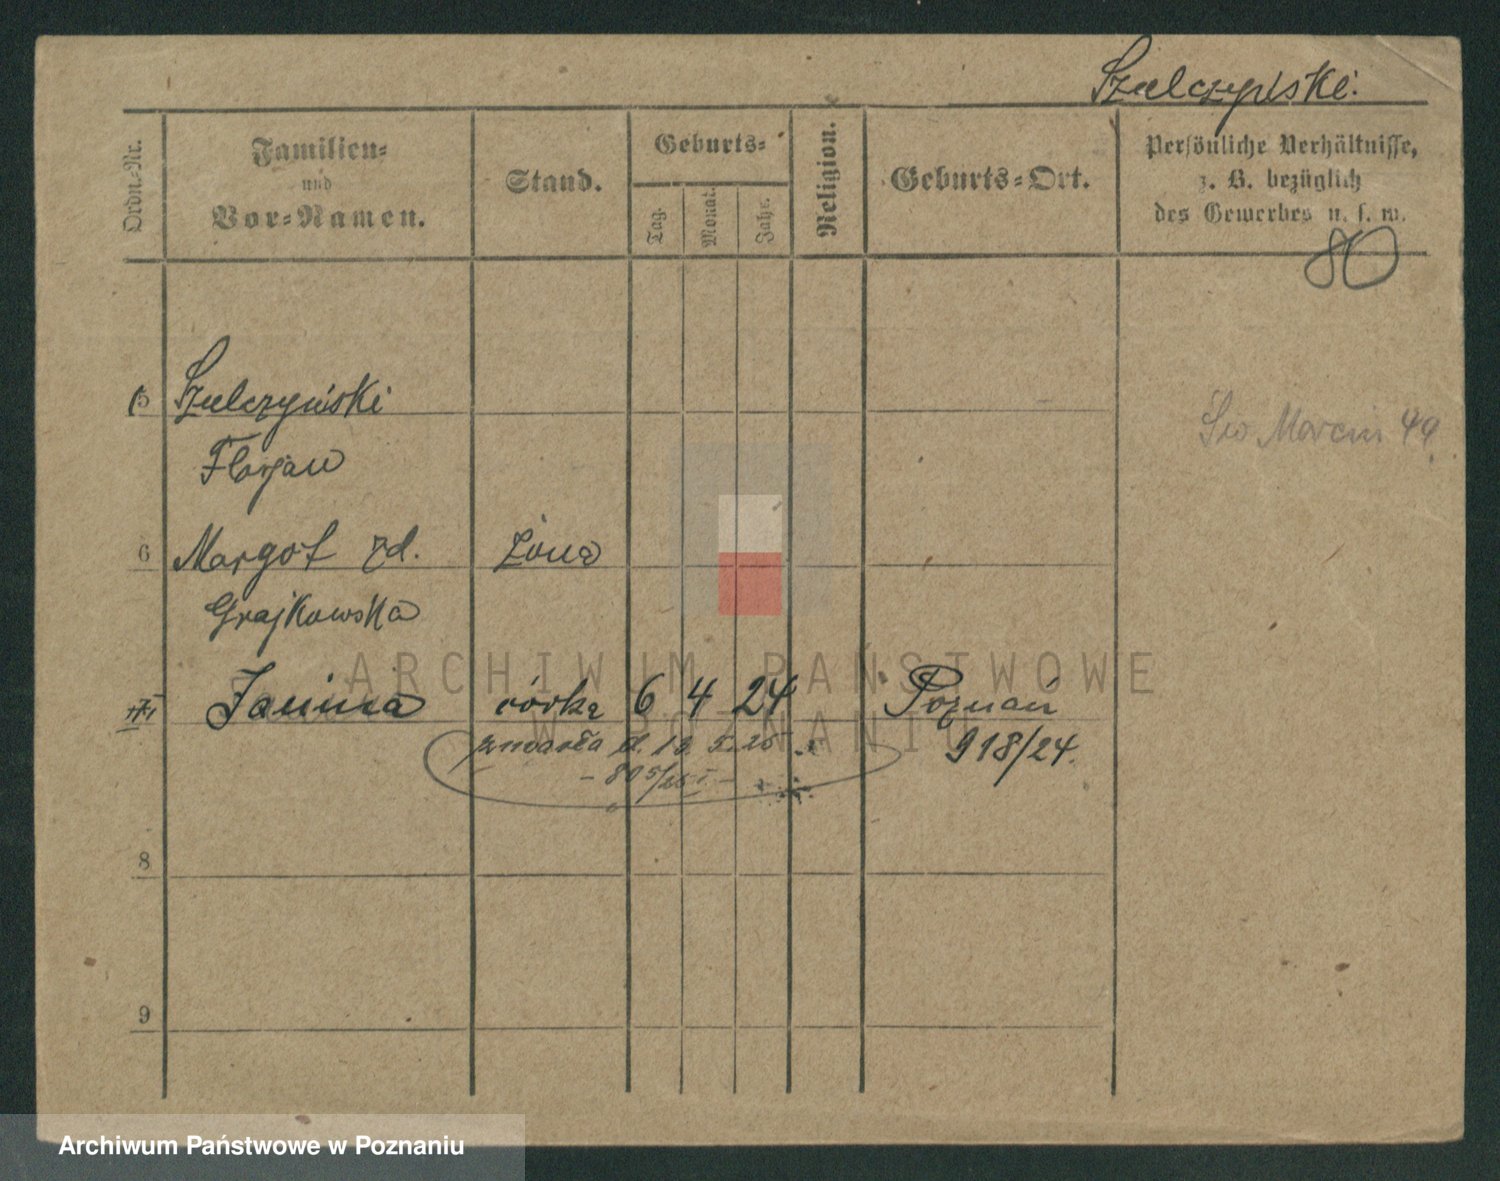 Szulczyński.
Ordn.-Nr.
Familien-
und
Vor-Namen.
Stand.
Geburts-
Tag.
Monat.
Jahr.
Religion.
Geburts-Ort.
Persönliche Verhältnisse,
z. B. bezüglich
des Gewerbes u. s. w.
80
5 Szulczyński
Florjan
Św Marcin 49
6 Margot zd. żona
Grajkowska
Janina córka 6 4 24 Poznań
zmarła d. 12 5. 25 918/24.
- 805/25 I -
8
9
ARCHIWUM PAŃSTWOWE
W POZNANIU
Archiwum Państwowe w Poznaniu